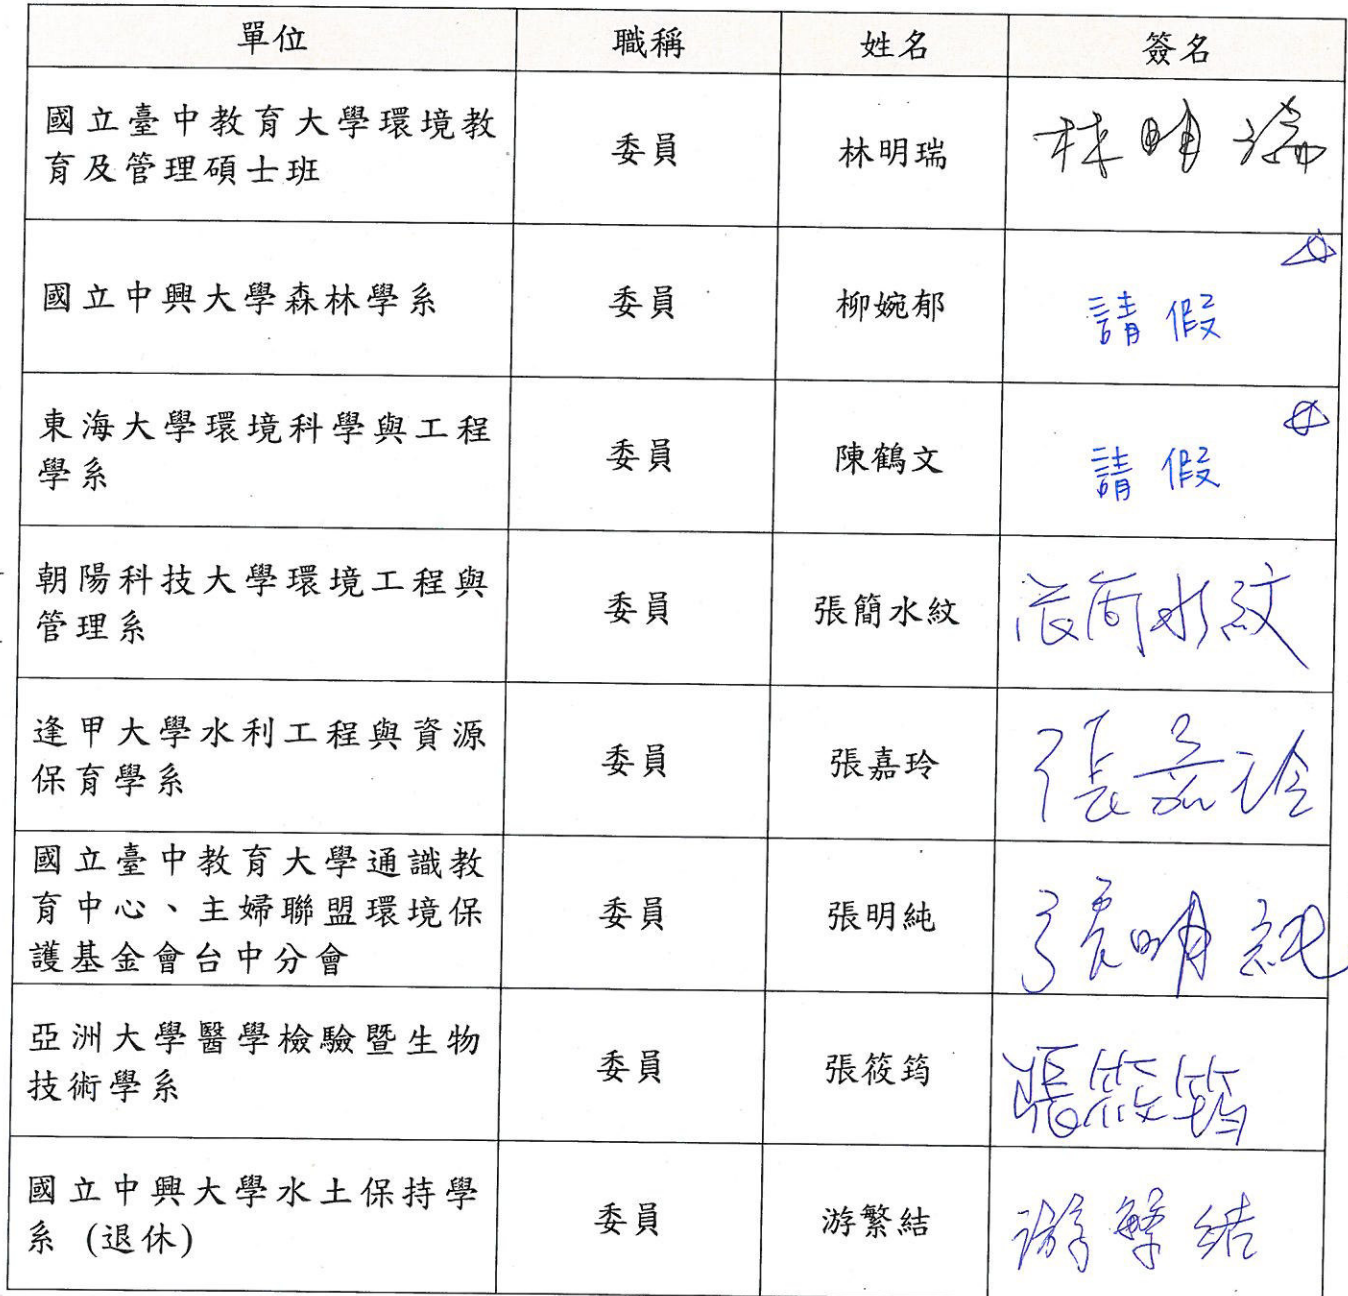 單位 職稱 姓名 簽名
國立臺中教育大學環境教
育及管理碩士班
委員 林明瑞 林明瑞
國立中興大學森林學系 委員 柳婉郁 請假
東海大學環境科學與工程
學系
委員 陳鶴文 請假
朝陽科技大學環境工程與
管理系
委員 張簡水紋 張簡水紋
逢甲大學水利工程與資源
保育學系
委員 張嘉玲 張嘉玲
國立臺中教育大學通識教
育中心、主婦聯盟環境保
護基金會台中分會
委員 張明純 張明純
亞洲大學醫學檢驗暨生物
技術學系
委員 張筱筠 張筱筠
國立中興大學水土保持學
系 (退休)
委員 游繁結 游繁結